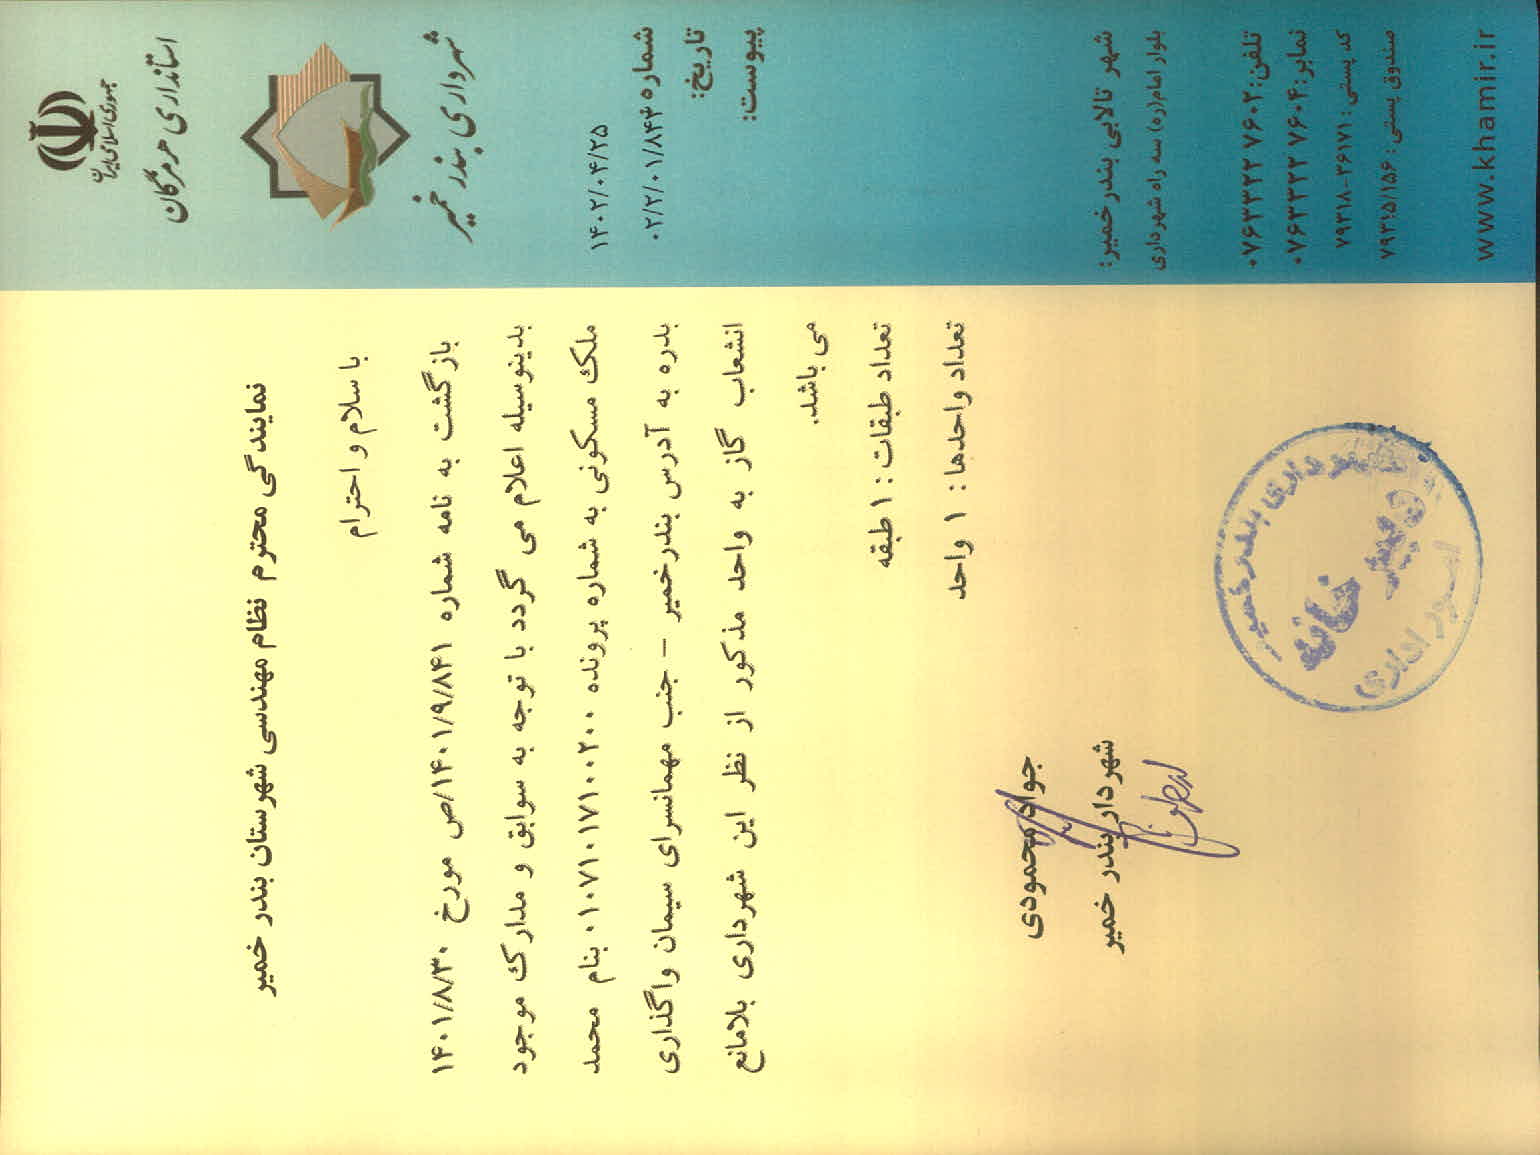 جمهوری اسلامی ایران
استانداری هرمزگان
شهرداری بندر خمیر
۱۴۰۲/۰۴/۲۵
شماره ۰۲/۲/۰۱/۸۴۳
تاریخ:
پیوست:
نمایندگی محترم نظام مهندسی شهرستان بندر خمیر
با سلام و احترام
بازگشت به نامه شماره ۱۴۰۱/۹/۸۴۱/ص مورخ ۱۴۰۱/۸/۳۰
بدینوسیله اعلام می گردد با توجه به سوابق و مدارک موجود
ملک مسکونی به شماره پرونده ۰۱۰۷۱۰۱۷۱۰۰۲۰۰ بنام محمد
بدره به آدرس بندرخمیر – جنب مهمانسرای سیمان واگذاری
انشعاب گاز به واحد مذکور از نظر این شهرداری بلامانع
می باشد.
تعداد طبقات : ۱ طبقه
تعداد واحدها : ۱ واحد
جواد محمودی
شهردار بندر خمیر
شهرداری بندر خمیر
دبیر خانه
امور اداری
شهر تالابی بندر خمیر:
بلوار امام(ره) سه راه شهرداری
تلفن: ۰۷۶۳۳۳۲۷۶۰۲
نمابر: ۰۷۶۳۳۳۲۷۶۰۴
کد پستی : ۷۹۳۱۸-۳۶۱۷۱
صندوق پستی : ۷۹۳۱۵/۱۵۶
www.khamir.ir